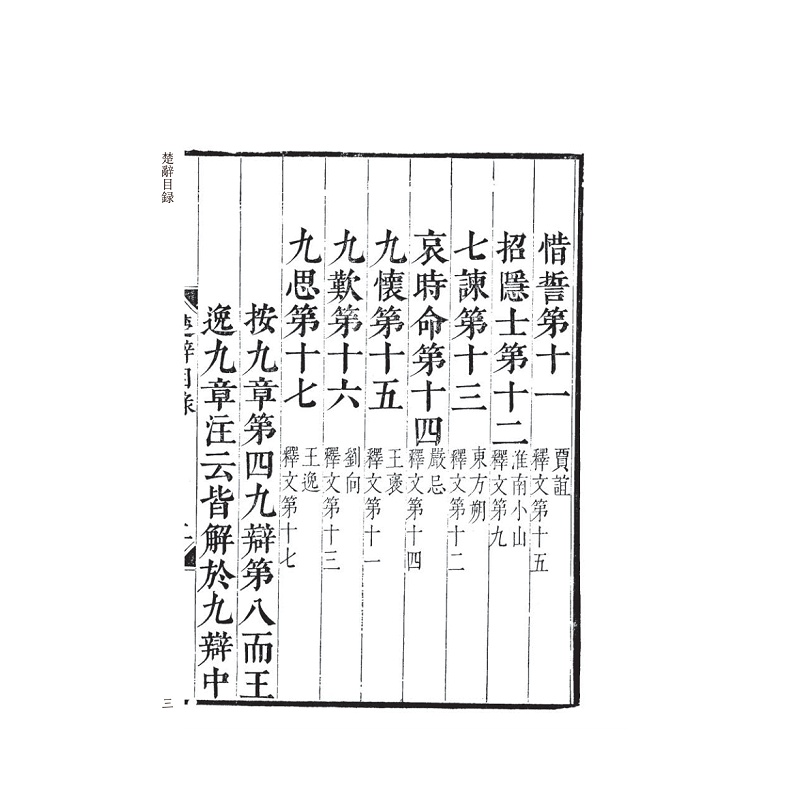 惜誓第十一
賈誼
釋文第十五
招隱士第十二
淮南小山
釋文第九
七諫第十三
東方朔
釋文第十二
哀時命第十四
嚴忌
釋文第十四
九懷第十五
王褒
釋文第十一
九歎第十六
劉向
釋文第十三
九思第十七
王逸
釋文第十七
按九章第四九辯第八而王
逸九章注云皆解於九辯中
楚辭目録
三